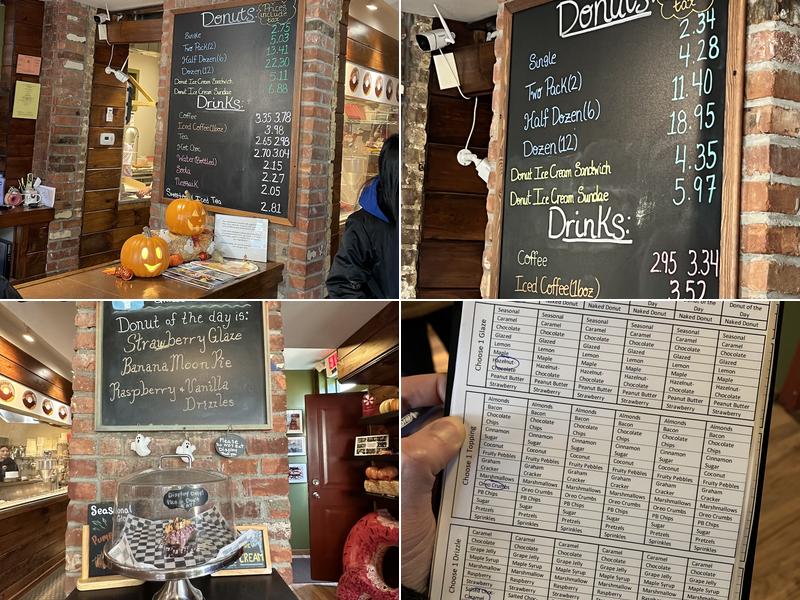 Donuts:
Prices include tax
Single 2.75
Two Pack(2) 5.03
Half Dozen(6) 13.41
Dozen(12) 22.30
Donut Ice Cream Sandwich 5.11
Donut Ice Cream Sundae 6.88
Drinks:
Coffee 3.35 3.78
Iced Coffee(16oz) 3.98
Tea 2.65 2.98
Hot Choc 2.70 3.04
Water(Bottled) 2.15
Soda 2.27
2.05
Iced Tea 2.81
Donuts:
tax
Single 2.34
Two Pack(2) 4.28
Half Dozen(6) 11.40
Dozen(12) 18.95
Donut Ice Cream Sandwich 4.35
Donut Ice Cream Sundae 5.97
Drinks:
Coffee 2.95 3.34
Iced Coffee(16oz) 3.52
Donut of the day is:
Strawberry Glaze
Banana Moon Pie
Raspberry + Vanilla
Drizzles
Please
Do Not Eat
Display
Display Only!
Seas
Pum
CREAM
Naked Donut Day Day Donut of the Day
Naked Donut Naked Donut Naked Donut
Choose 1 Glaze
Seasonal Seasonal Seasonal Seasonal Seasonal Seasonal
Caramel Caramel Caramel Caramel Caramel Caramel
Chocolate Chocolate Chocolate Chocolate Chocolate Chocolate
Glazed Glazed Glazed Glazed Glazed Glazed
Lemon Lemon Lemon Lemon Lemon Lemon
Maple Maple Maple Maple Maple Maple
Hazelnut- Hazelnut- Hazelnut- Hazelnut- Hazelnut- Hazelnut-
Chocolate Chocolate Chocolate Chocolate Chocolate Chocolate
Peanut Butter Peanut Butter Peanut Butter Peanut Butter Peanut Butter Peanut Butter
Strawberry Strawberry Strawberry Strawberry Strawberry Strawberry
Choose 1 Topping
Almonds Almonds Almonds Almonds Almonds Almonds
Bacon Bacon Bacon Bacon Bacon Bacon
Chocolate Chocolate Chocolate Chocolate Chocolate Chocolate
Chips Chips Chips Chips Chips Chips
Cinnamon Cinnamon Cinnamon Cinnamon Cinnamon Cinnamon
Sugar Sugar Sugar Sugar Sugar Sugar
Coconut Coconut Coconut Coconut Coconut Coconut
Fruity Pebbles Fruity Pebbles Fruity Pebbles Fruity Pebbles Fruity Pebbles Fruity Pebbles
Graham Graham Graham Graham Graham Graham
Cracker Cracker Cracker Cracker Cracker Cracker
Marshmallows Marshmallows Marshmallows Marshmallows Marshmallows Marshmallows
Oreo Crumbs Oreo Crumbs Oreo Crumbs Oreo Crumbs Oreo Crumbs Oreo Crumbs
PB Chips PB Chips PB Chips PB Chips PB Chips PB Chips
Sugar Sugar Sugar Sugar Sugar Sugar
Pretzels Pretzels Pretzels Pretzels Pretzels Pretzels
Sprinkles Sprinkles Sprinkles Sprinkles Sprinkles Sprinkles
Choose 1 Drizzle
Caramel Caramel Caramel Caramel Caramel Caramel
Chocolate Chocolate Chocolate Chocolate Chocolate Chocolate
Grape Jelly Grape Jelly Grape Jelly Grape Jelly Grape Jelly Grape Jelly
Maple Syrup Maple Syrup Maple Syrup Maple Syrup Maple Syrup Maple Syrup
Marshmallow Marshmallow Marshmallow Marshmallow Marshmallow Marshmallow
Raspberry Raspberry Raspberry Raspberry Raspberry Raspberry
Strawberry Strawberry Strawberry Strawberry Strawberry Strawberry
Salted Choc.